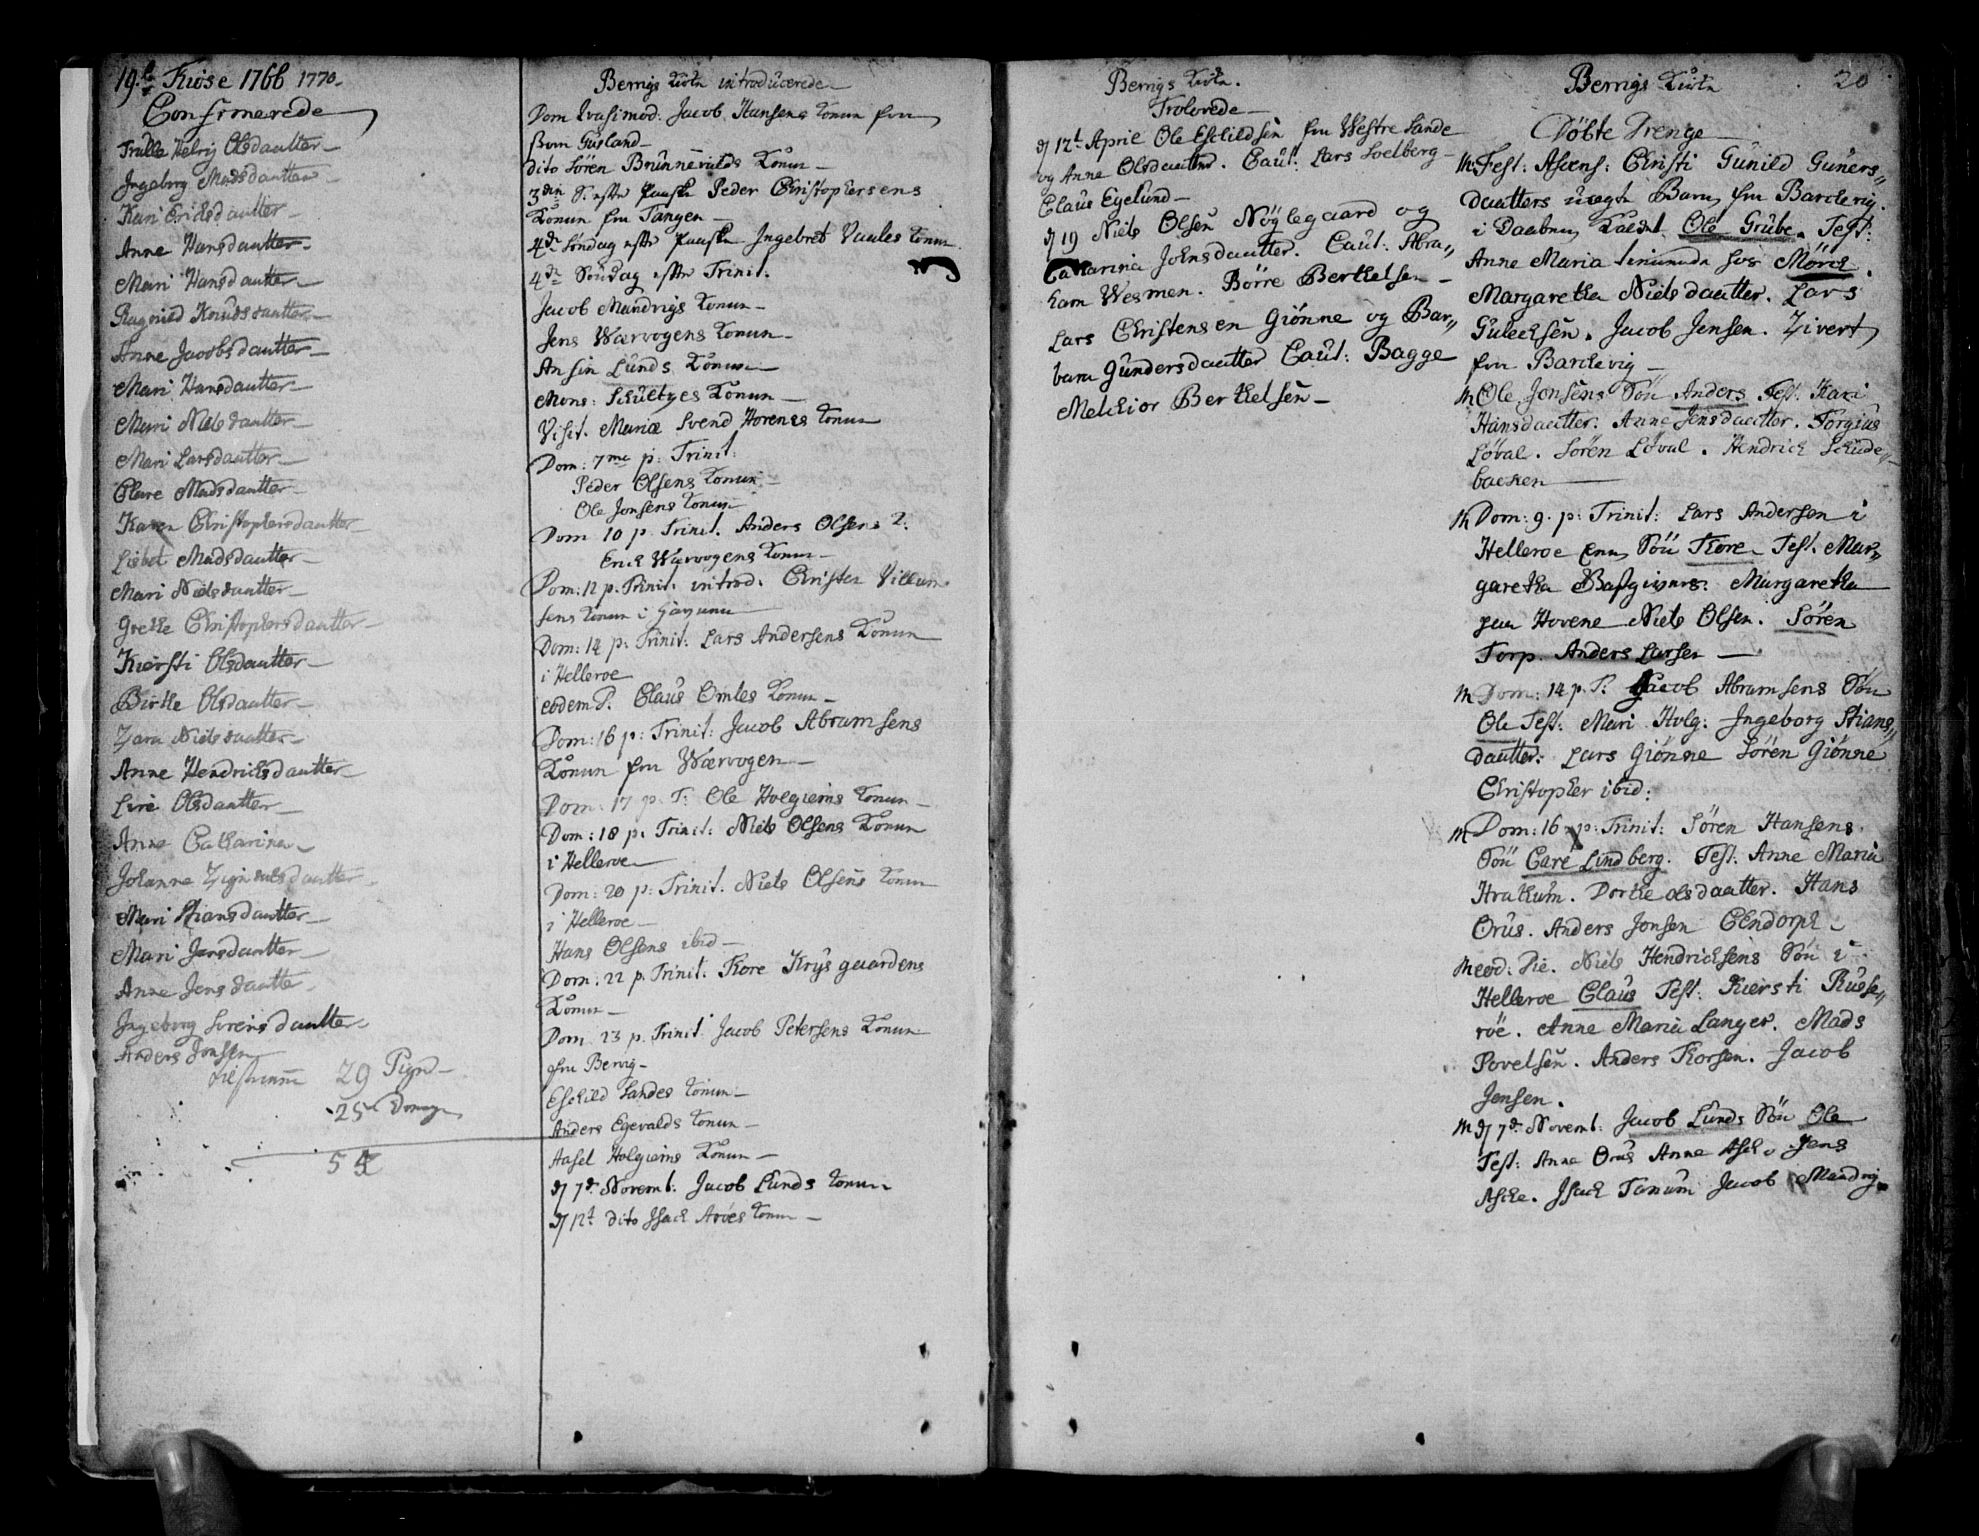 19. Kiose 1766 1770.
Confirmerede
Trulle Helvig Olsdautter
Ingeborg Madsdautter
Kari Ericksdautter
Anne Hansdautter
Mari Hansdautter
Ragnild Knudsdautter
Anne Jacobsdautter
Mari Hansdautter
Mari Nielsdautter
Mari Larsdautter
Clare Madsdautter
Karen Christophersdautter
Lisbet Madsdautter
Mari Nielsdautter
Grethe Christophersdautter
Kiersti Olsdautter
Birthe Olsdautter
Zara Nielsdautter
Anne Hendrichsdautter
Live Olsdautter
Anne Catharina
Johanne dautter
Mari Stiansdautter
Mari Jensdautter
Anne Jensdautte
Ingeborg Sørensdautter
Anders Jonsen
29 Pigr
25 Dreng
54
Berrigs Kirke introducerede
Dom Qvasimod: Jacob Hansens Konun fra
Gusland
dito Sören Brunnevalds Konun
3die S. efter Paaske Peder Christophersens
Konun fra Tangen
4de Söndag efter Paaske Ingebret Vaules Konun
4de Söndag efter Trinit.
Jacob Mandvigs Konun
Jens Wærvogens Konun
Ansin Lunds Konun
Mons: Schultzes Konun
Visit. Mariæ Svend Horenes Konun
Dom: 7me p: Trinit:
Peder Olsens Konun
Ole Jonsens Konun
Dom 10 p. Trinit. Anders Olsens K:
Erick Wærvogens Konun
Dom: 12 p. Trinit: introd: Christen Villum
sens Konun i
Dom: 14 p: Trinit: Lars Andersens Konun
i Helleroe
eodem D. Claus Omles Konun
Dom: 16 p: Trinit: Jacob Abramsens
Konun fra Wærvogen
Dom: 17 p. T: Ole Holgiems Konun
Dom: 18 p. Trinit: Niels Olsens Konun
i Helleroe
Dom: 20 p: Trinit. Niels Olsens Konun
i Helleroe
Hans Olsens ibid
Dom: 22 p. Trinit. Kore Krysgaardens
Konun
Dom 23 p. Trinit Jacob Petersens Konun
fra Bervig
Eschild Sandes Konun
Anders Egevalds Konun
Aasel Holgiems Konun
d 7de Novemb: Jacob Lunds Konun
d 12t dito Isach Aröes Konun
Berrigs Kirke.
Trolovede
d 12t April Ole Eschildsen fra Westre Sande
og Anne Olsdautter. Caut: Lars Soelberg
Claus Egelund
d 19 Niels Olsen Nöglegaard og
Catharina Johnsdautter. Caut: Abra„
ham Wesmen. Börre Berthelsen
Lars Christensen Giönne og Bar„
bara Gundersdautter Caut: Bagge
Melchior Berthelsen
Berrigs Kirke 20
Döbte Drenge
Fest: Ascens: Christi Gunild Guners„
dautters uægte Barn fra Barchvig.
i Daaben Kaldt Ole Grube. Test:
Anne Maria hos Mörch.
Margaretha Nielsdautter. Lars
Gulechsen. Jacob Jensen. Zivert
fra Barchvig
Ole Jonsens Sön Anders Test. Kari
Hansdautter. Anne Jensdautter. Torgius
Löval. Sören Löval. Hendrich Schude„
bachen
Dom: 9. p: Trinit: Lars Andersen i
Helleroe Sön Kore Test. Mar„
garetha Margaretha
paa Hovene Niels Olsen. Sören
Torp. Anders Larsen
Dom: 14 p. T. Jacob Abramsens Sön
Ole Test: Mari Holg: Ingeborg Stians„
dautter. Lars Giönne Sören Giönne
Christopher ibid:
Dom: 16 p: Trinit: Sören Hansens
Sön Care Lindberg. Test. Anne Maria
Hrakum. Dorthe Olsdautter. Hans
Orus. Anders Jonsen Glendorph
eod: Die. Niels Hendrichsens Sön i
Helleroe Claus Test: Kiersti Russe„
röe. Anne Maria Langer. Mads
Povelsen. Anders Korsen. Jacob
Jensen.
d 7de Novemb: Jacob Lunds Sön Ole
Test: Anne Orus Anne Ask. Jens
Aske. Isach Tanum Jacob Mandvig